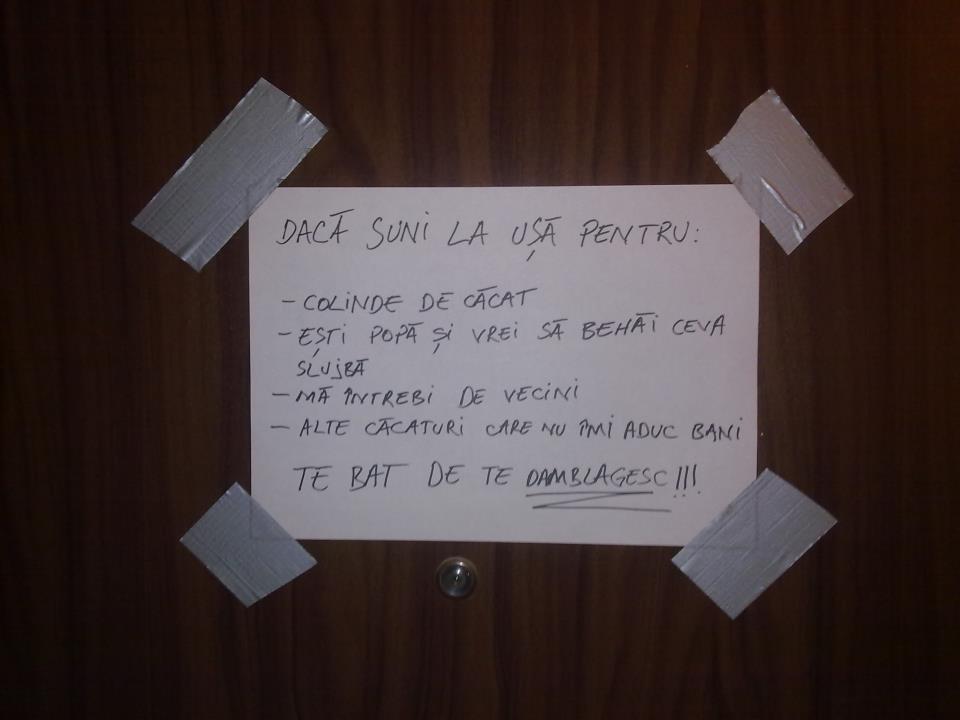 DACĂ SUNI LA UȘĂ PENTRU:
- COLINDE DE CĂCAT
- EȘTI POPĂ ȘI VREI SĂ BEHĂI CEVA
SLUJBĂ
- MĂ ÎNTREBI DE VECINI
- ALTE CĂCATURI CARE NU ÎMI ADUC BANI
TE BAT DE TE DAMBLAGESC!!!